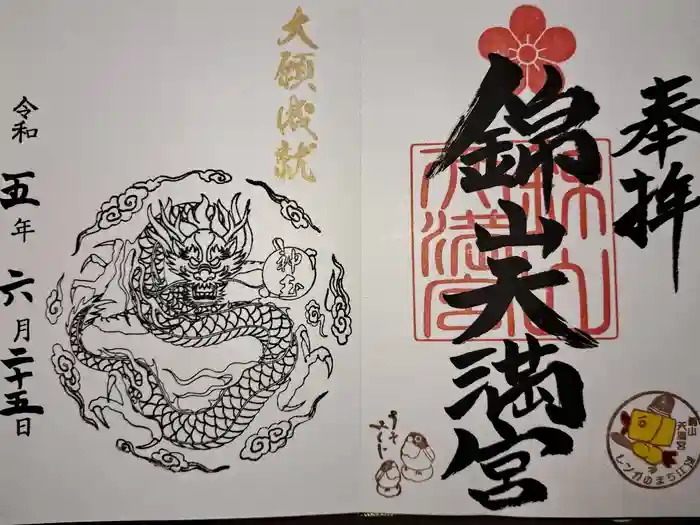 奉拝
錦山天満宮
錦山
天満宮
錦山
天満宮
レンガのまち江別
大願成就
神玉
令和五年六月二十五日